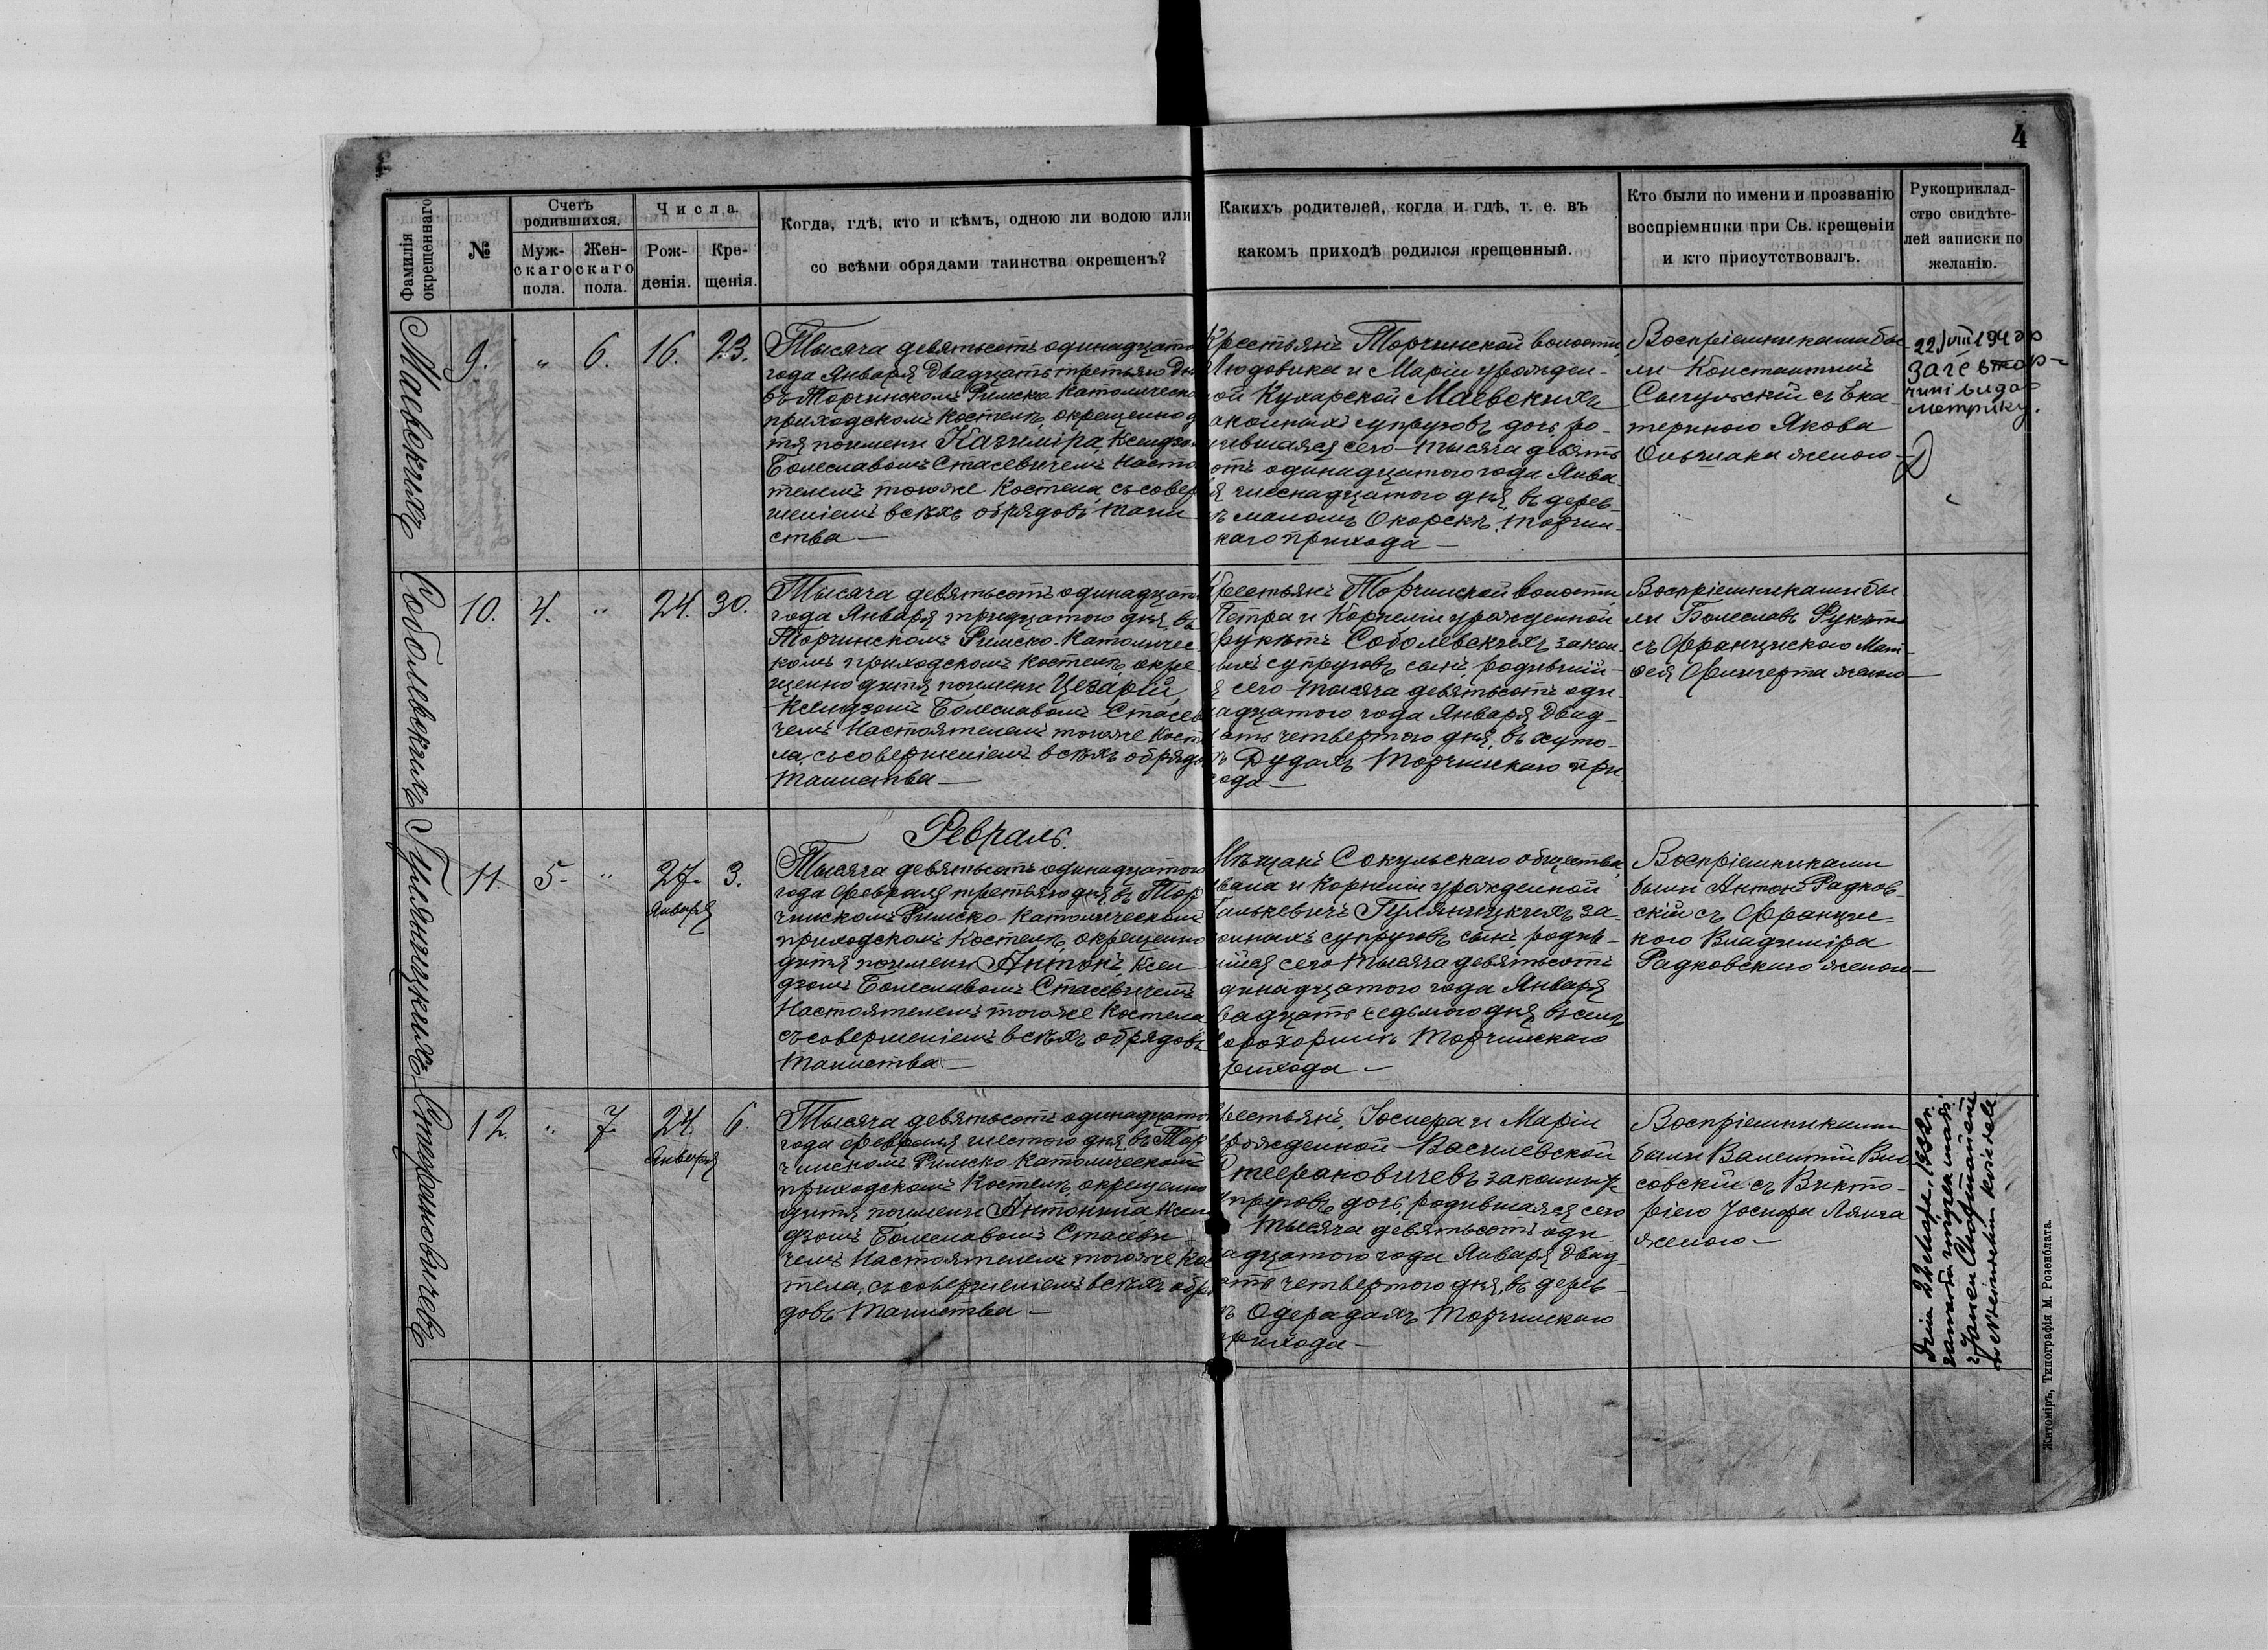 4
Фамилія окрещеннаго
№
Счетъ родившихся.
Муж-скаго пола.
Жен-скаго пола.
Числа.
Рож-денія.
Кре-щенія.
Когда, гдѣ, кто и кѣмъ, одною ли водою или
со всѣми обрядами таинства окрещенъ?
Какихъ родителей, когда и гдѣ, т. е. въ
какомъ приходѣ родился крещенный.
Кто были по имени и прозванію
воспріемники при Св. крещеніи
и кто присутствовалъ.
Рукоприклад-
ство свидѣте-
лей записки по
желанію.
Маевскихъ
9. " 6. 16. 23.
Тысяча девятьсотъ одинадцато
года Января двадцать третьяго дн
въ Торчинскомъ Римско-Католическо
приходскомъ Костелѣ, окрещено д
тя поимени Казиміра, Ксендзо
Болеславомъ Стасевичемъ Насто
телемъ тогоже Костела, съ совер
шеніемъ всѣхъ обрядовъ таин
ства —
Крестьянъ Торчинской волости,
Людовика и Маріи урожден-
ой Кухарской Маевскихъ
аконныхъ супруговъ дочь, ро-
ившаяся сего тысяча девять
отъ одинадцатого года Янва-
я шеснадцатого дня, въ дерев-
ѣ маломъ Окорскѣ, Торчин-
каго прихода —
Воспріемниками бы-
ли Константинъ
Сынгульскій съ Ека-
териною Якова
женою —
22/VIII 194
ЗАГС в Тор-
чині видав
метрику.
Соболевскихъ
10. 4. " 24. 30.
Тысяча девятьсотъ одинадцат
года Января тридцатого дня, въ
Торчинскомъ Римско-Католичес
комъ приходскомъ Костелѣ, окре
щенно дитя поимени Цезарій,
Ксендзомъ Болеславомъ Стасев
чемъ Настоятелемъ тогоже Кост
ла, съ совершеніемъ всѣхъ обрядо
таинства —
Крестьянъ Торчинской волости,
Петра и Корнеліи урожденной
Рукѣтъ Соболевскихъ закон
ыхъ супруговъ сынъ, родившій-
я сего тысяча девятьсотъ оди
адцатого года Января двад-
ать четвертого дня, въ хуто-
ѣ Дудахъ Торчинскаго при
ода —
Воспріемниками бы
ли Болеславъ Рукѣтъ
съ Францискою Мат-
фея Фингерта женою —
Гуляницкихъ
Февраль.
11. 5- " 27. 3.
Января
Тысяча девятьсотъ одинадцатого
года февраля третьяго дня, въ Тор
чинскомъ Римско-Католическомъ
приходскомъ Костелѣ, окрещенно
дитя поимени Антонъ, Ксен
дзомъ Болеславомъ Стасевичемъ
Настоятелемъ тогоже Костела
съ совершеніемъ всѣхъ обрядовъ
таинства —
Мѣщанъ Сокульскаго общества,
вана и Корнеліи урожденной
алькевичъ Гуляницкихъ за-
онныхъ супруговъ сынъ, родив-
ійся сего тысяча девятьсотъ
динадцатого года Января
вадцать седьмого дня, въ селѣ
орохоринѣ Торчинскаго
рихода —
Воспріемниками
были Антонъ Радков-
скій съ Францис-
кою Владиміра
Радковскаго женою —
Стефановичевъ
12. " 7. 24. 6.
Января
Тысяча девятьсотъ одинадцато
года февраля шестого дня, въ Тор
чинскомъ Римско-Католическомъ
приходскомъ Костелѣ, окрещенно
дитя поимени Антонина, Ксен
дзомъ Болеславомъ Стасеви-
чемъ Настоятелемъ тогоже Ко
тела, съ совершеніемъ всѣхъ обря
довъ таинства —
рестьянъ, Іосифа и Маріи
рожденной Василевской
Стефановичевъ законны
упруговъ дочь, родившаяся сего
тысяча девятьсотъ оди
адцатого года Января двад-
ать четвертого дня, въ дерев-
ѣ Одерадахъ Торчинскаго
рихода —
Воспріемниками
были Валентій Вис
совскій съ Викто-
ріею Іосифа Лянга
женою —
Dnia 22 lutego, 1932 r.
zawarła związek małż.
z Janem
w kościele
Житоміръ, Типографія М. Розенблата.